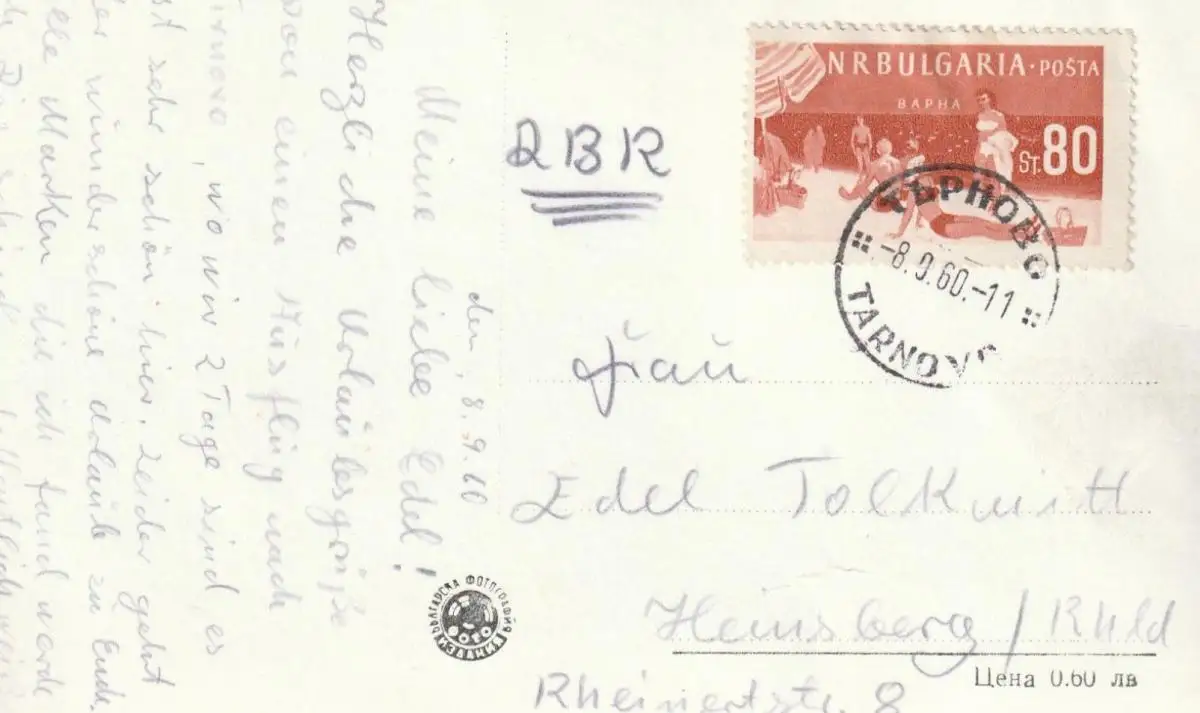 den, 8.9.60
Meine liebe Edel!
Herzliche Urlaubsgrüße
von einem Ausflug nach
Tirnovo, wo wir 2 Tage sind, es
ist sehr schön hier. Leider geht
der wunderschöne Urlaub zu Ende.
Marken die ich fand werde
NRBULGARIA · POŠTA
ВАРНА
ST. 80
ТЪРНОВО
-8.9.60.-11
TARNOVO
DBR
Frau
Edel Tolkmitt
Heinsberg/Rhld
Rheinertstr. 8
БЪЛГАРСКА ФОТОГРАФИЯ
ФОТО
ИЗДАНИЯ
Цена 0.60 лв